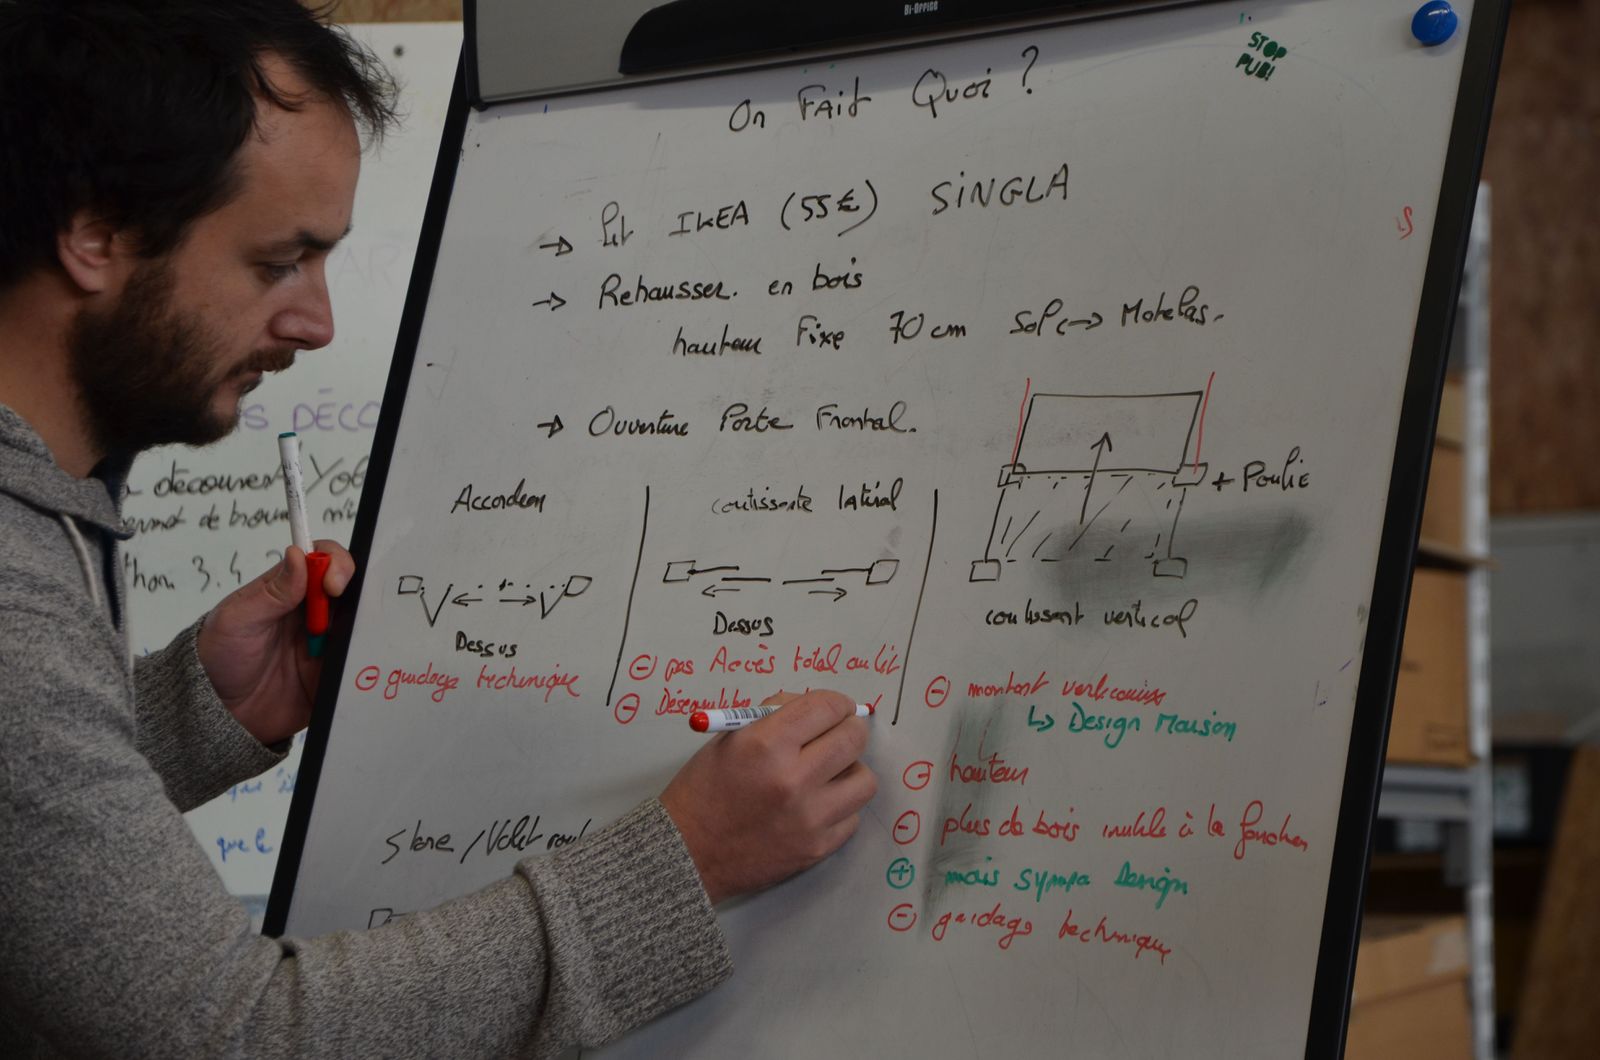 Bi-Office
STOP
PUB!
On Fait Quoi ?
→ Lit IKEA (55€) SiNGLA
→ Rehausser. en bois
hauteur Fixe 70 cm Sol ↔ Matelas.
→ Ouverture Porte Frontal.
Accordeon
coulissante latéral
+ Poulie
Dessus
Dessus
coulissant vertical
⊖ guidage technique
⊖ pas Accès total au lit
⊖ Déséquilibre
⊖ montant verticaux
↳ Design Maison
⊖ hauteur
⊖ plus de bois inutile à la fonction
⊕ mais sympa Design
⊖ guidage technique
Store / Volet
DÉCO
decouvert
de
thon 3.4
que
que le